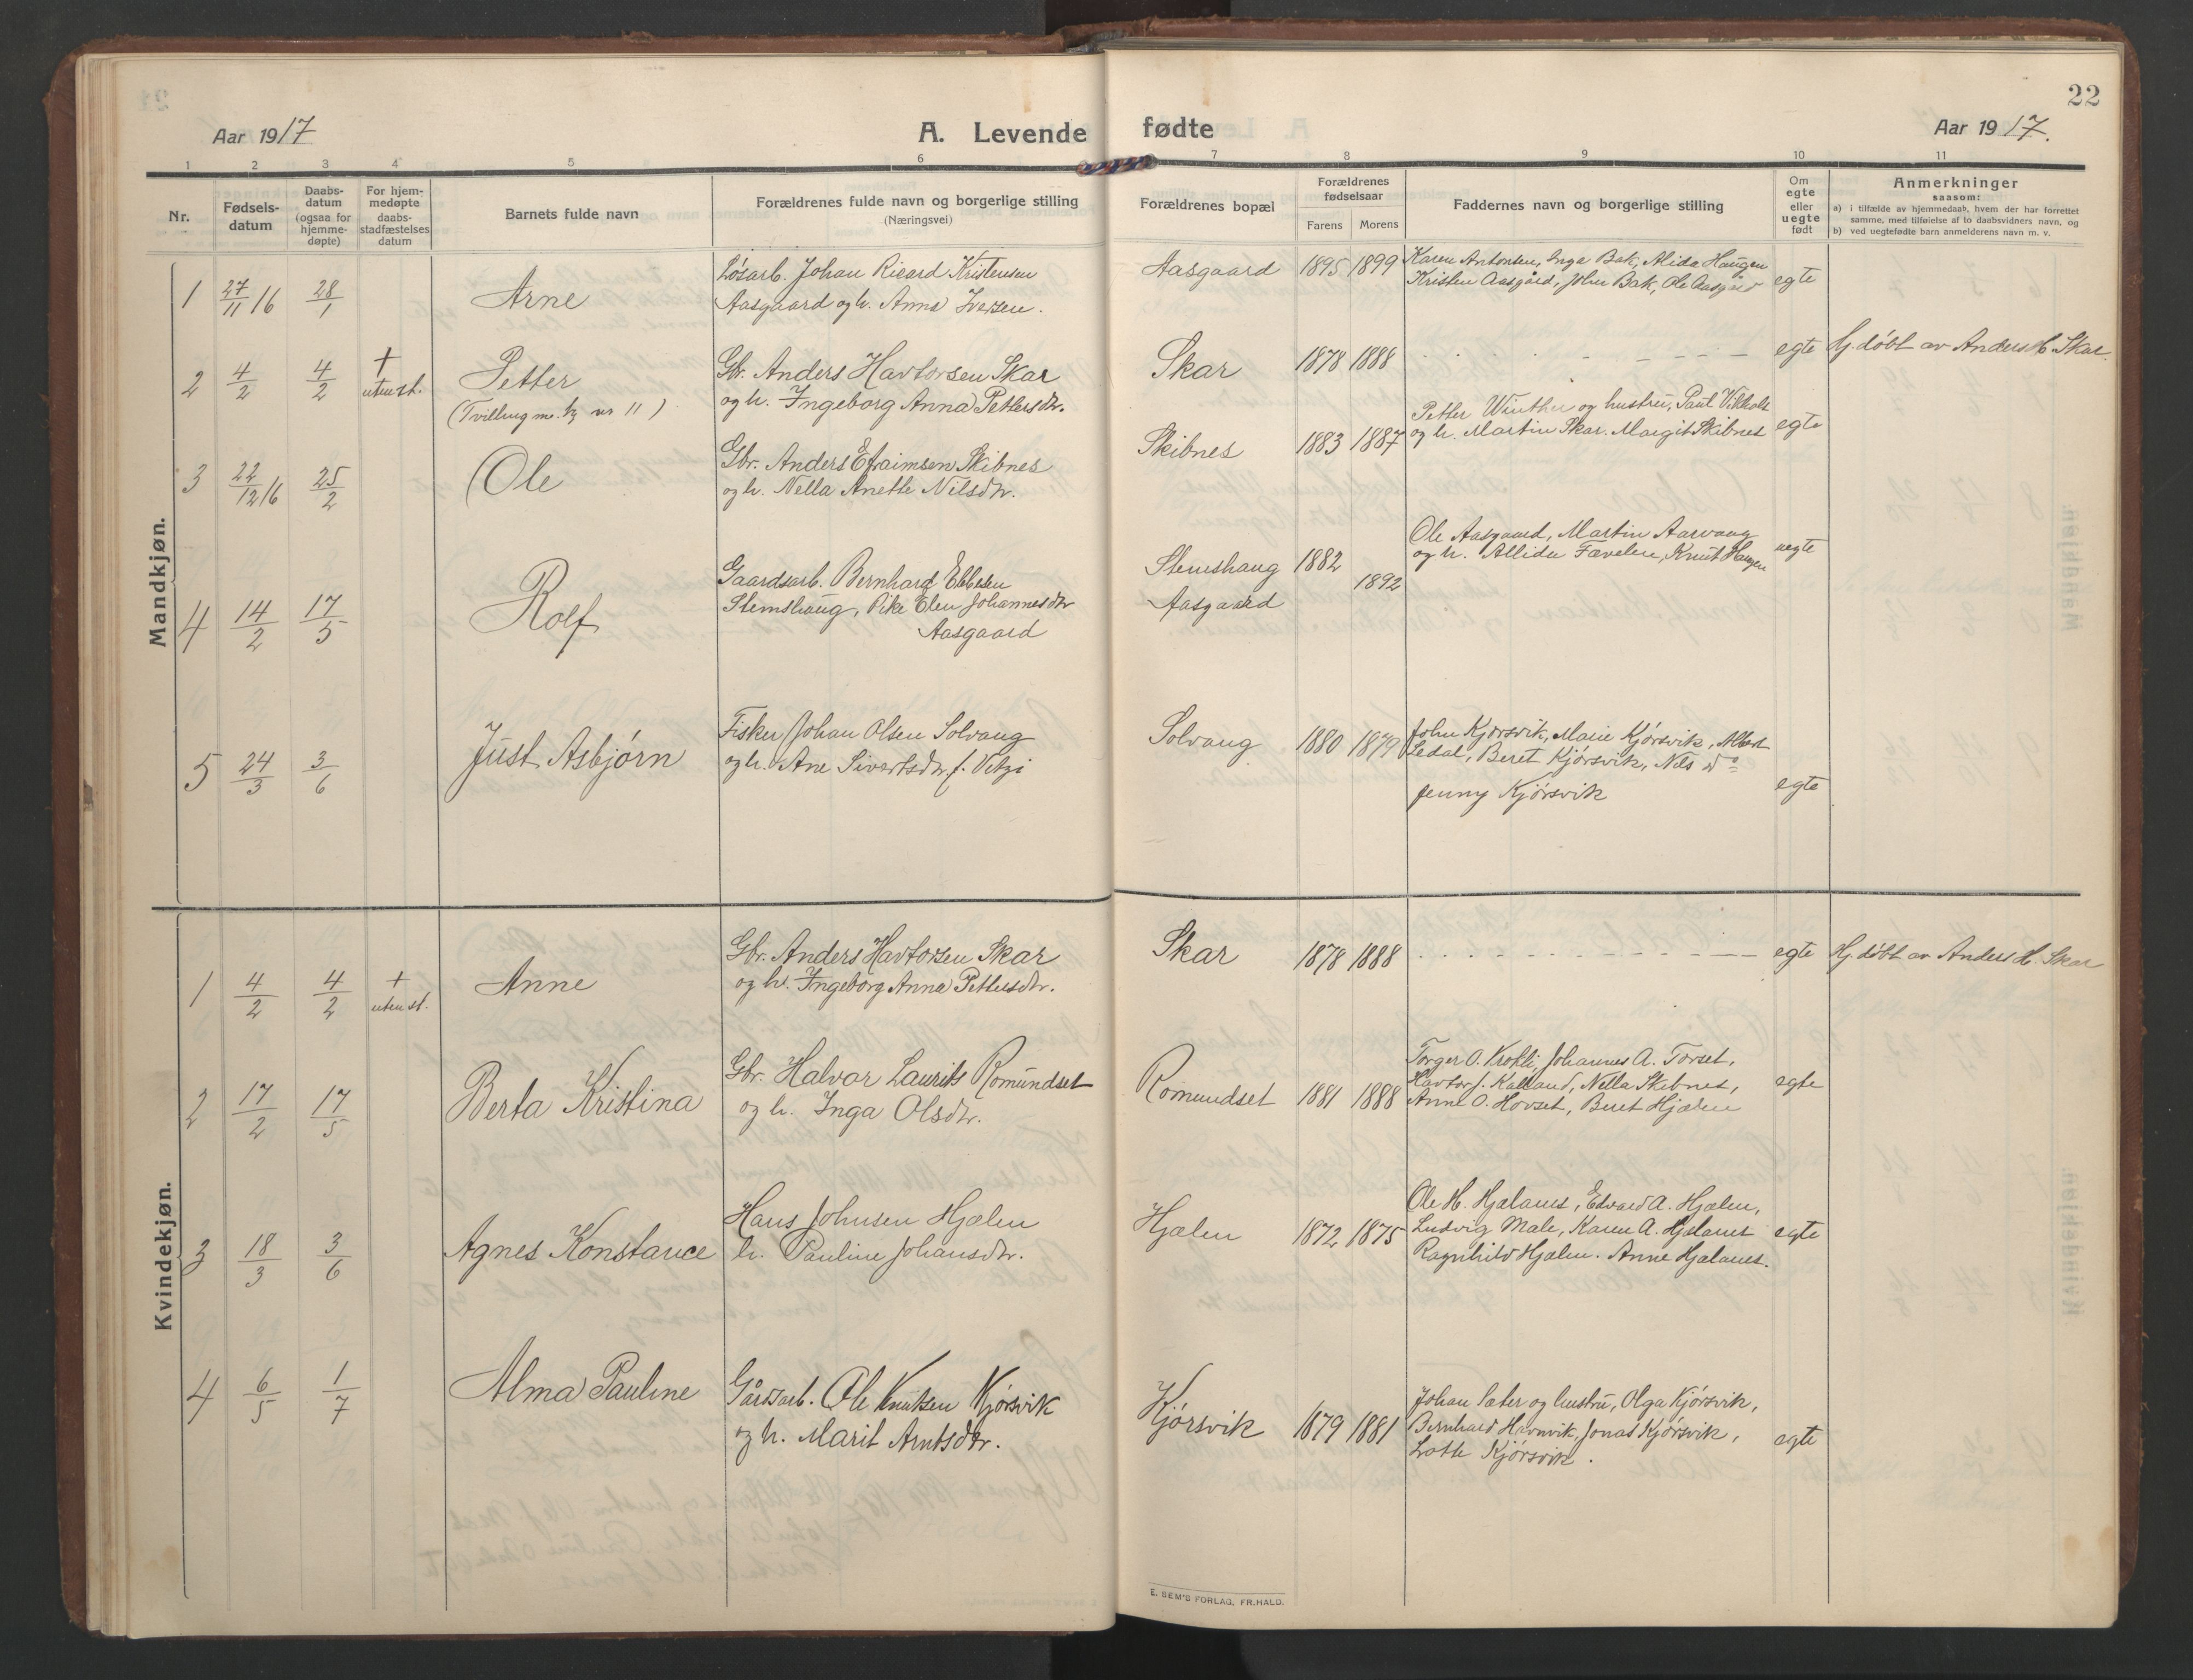 22
Aar 1917
A. Levende fødte
Aar 1917.
1 2 3 4 5 6 7 8 9 10 11
Nr.
Fødsels-
datum
Daabs-
datum
(ogsaa for
hjemme-
døpte)
For hjem-
medøpte
daabs-
stadfæstelses
datum
Barnets fulde navn
Forældrenes fulde navn og borgerlige stilling
(Næringsvei)
Forældrenes bopæl
Forældrenes
fødselsaar
Farens Morens
Faddernes navn og borgerlige stilling
Om
egte
eller
uegte
født
Anmerkninger
saasom:
a) i tilfælde av hjemmedaab, hvem der har forrettet
samme, med tilføielse af to daabsvidners navn, og
b) ved uegtefødte barn anmelderens navn m. v.
Mandkjøn.
1 27/11 16 28/1 Arne
Løsarb. Johan Ricard Kristensen
Aasgaard og h. Anna Iversen.
Aasgaard 1895 1899
Karen Antonsen, Inga Bak, Alida Haugen
Kristen Aasgård, John Bak, Ole Aasgård
egte
2 4/2 4/2 + uten st. Petter
(Tvilling m. kj nr 11)
Gbr. Anders Havtorsen Skar
og h. Ingeborg Anna Pettersdtr.
Skar 1878 1888
egte Hj. døbt av Anders H. Skar.
3 22/12 16 25/2 Ole
Gbr. Anders Efraimsen Skibnes
og h. Nella Anette Nilsdtr.
Skibnes 1883 1887
Petter Winther og hustru, Paul Vikholt
og h. Martin Skar. Margit Skibnes
egte
4 14/2 17/5 Rolf
Gaardsarb. Bernhard Ebbesen
Stemshaug, Pike Elen Johannesdtr
Aasgaard
Stemshaug 1882
Aasgaard 1892
Ole Aasgaard, Martin Aasvang
og h. Allida Favelen, Knut Haugen
uegte
5 24/3 3/6 Just Asbjørn
Fisker Johan Olsen Solvang
og h. Ane Sivertsdtr f. Vitsø
Solvang 1880 1879
John Kjørsvik, Marie Kjørsvik, Albert
Ledal, Beret Kjørsvik, Nils do
Jenny Kjørsvik
egte
Kvindekjøn.
1 4/2 4/2 + uten st. Anne
Gbr. Anders Havtorsen Skar
og h. Ingeborg Anna Pettersdtr.
Skar 1878 1888
egte Hj. døbt av Anders H. Skar
2 17/2 17/5 Berta Kristina
Gbr. Halvar Laurits Romundset
og h. Inga Olsdtr.
Romundset 1881 1888
Torger O. Krokli, Johannes A. Torset,
Havtor J. Kalland, Nella Skibnes,
Anne O. Hovset, Beret Hjælen
egte
3 18/3 3/6 Agnes Konstance
Hans Johnsen Hjælen
h. Pauline Johansdtr.
Hjælen 1872 1875
Ole H. Hjelanes, Edvard A. Hjælen,
Ludvig Male, Karen A. Hjelanes
Ragnhild Hjælen. Anne Hjelanes.
egte
4 6/5 1/7 Alma Pauline
Gårdsarb. Ole Knutsen Kjørsvik
og h. Marit Arntsdtr.
Kjørsvik 1879 1881
Johan Sæter og hustru, Olga Kjørsvik,
Bernhard Havnvik, Jonas Kjørsvik,
Lotte Kjørsvik.
egte
E. SEM'S FORLAG, FR.HALD.